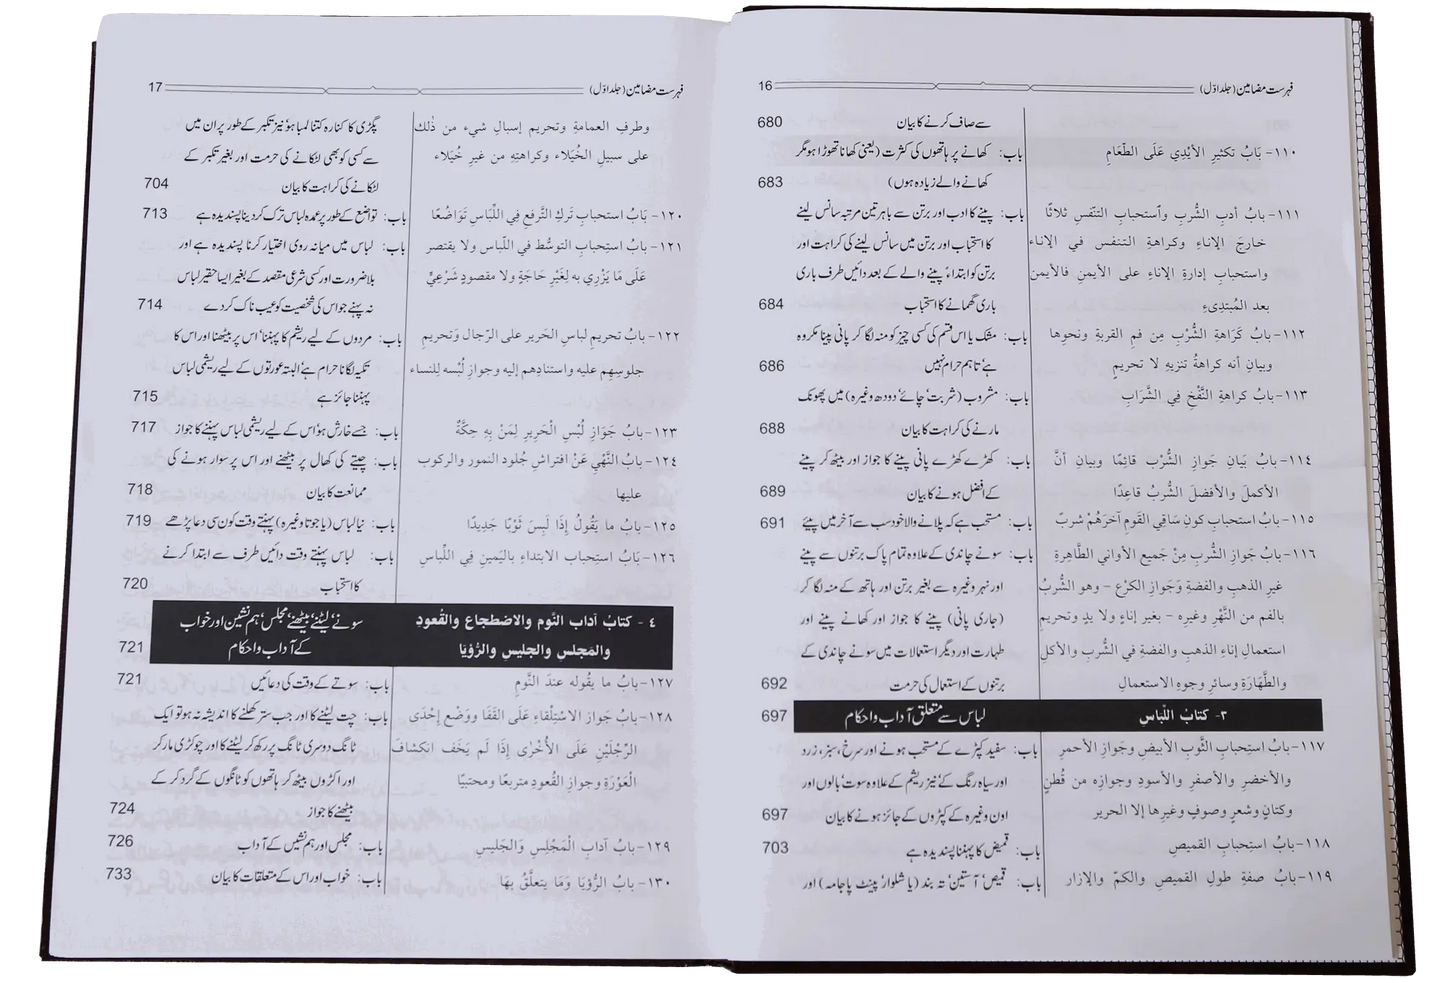 16 فہرست مضامین (جلد اوّل)
سے صاف کرنے کا بیان 680
١١٠- بَابُ تكثيرِ الأيْدِي عَلَى الطَّعَامِ باب: کھانے پر ہاتھوں کی کثرت (یعنی کھانا تھوڑا ہو مگر
کھانے والے زیادہ ہوں) 683
١١١- بابُ أدبِ الشُّربِ واستحبابِ التنّفسِ ثلاثًا باب: پینے کا ادب اور برتن سے باہر تین مرتبہ سانس لینے
خارجَ الإناءِ وكراهةِ التنفس في الإناء کا استحباب اور برتن میں سانس لینے کی کراہت اور
واستحبابِ إدارةِ الإناءِ على الأيمنِ فالأيمن برتن کو ابتداءً پینے والے کے بعد دائیں طرف باری
بعد المُبتدِىءِ باری گھمانے کا استحباب 684
١١٢- بابُ كَرَاهةِ الشُّرْبِ مِن فمِ القربةِ ونحوها باب: مشک یا اس قسم کی کسی چیز کو منہ لگا کر پانی پینا مکروہ
وبيانِ أنه كراهةُ تنزيهٍ لا تحريمٍ ہے' تاہم حرام نہیں 686
١١٣- بابُ كراهةِ النَّفْخِ فِي الشَّرَابِ باب: مشروب (شربت' چائے' دودھ وغیرہ) میں پھونک
مارنے کی کراہت کا بیان 688
١١٤- بابُ بَيَانِ جَوازِ الشُّرْبِ قائِمًا وبيانِ أنَّ باب: کھڑے کھڑے پانی پینے کا جواز اور بیٹھ کر پینے
الأكملَ والأفضلَ الشُّربُ قاعِدًا کے افضل ہونے کا بیان 689
١١٥- بابُ استحبابِ كونِ سَاقِي القَومِ آخرَهُمْ شربًا باب: مستحب ہے کہ پلانے والا خود سب سے آخر میں پیئے 691
١١٦- بابُ جَوازِ الشُّربِ مِنْ جَميعِ الأواني الطَّاهِرةِ باب: سونے چاندی کے علاوہ تمام پاک برتنوں سے پینے
غيرِ الذهبِ والفضةِ وَجَوازِ الكرْعِ - وهو الشُّربُ اور نہر وغیرہ سے بغیر برتن اور ہاتھ کے منہ لگا کر
بالفمِ من النَّهْرِ وغيرِه - بغيرِ إناءٍ ولا يدٍ وتحريمِ (جاری پانی) پینے کا جواز اور کھانے پینے اور
استعمالِ إناءِ الذهبِ والفضةِ في الشُّربِ والأكلِ طہارت اور دیگر استعمالات میں سونے چاندی کے
والطَّهَارَةِ وسائرِ وجوهِ الاستعمالِ برتنوں کے استعمال کی حرمت 692
٣- كتابُ اللّبَاسِ لباس سے متعلق آداب و احکام 697
١١٧- بابُ استِحبابِ الثَّوبِ الأبيضِ وجَوازِ الأحمرِ باب: سفید کپڑے کے مستحب ہونے اور سرخ، سبز، زرد
والأخضرِ والأصفرِ والأسودِ وجوازِه من قُطنٍ اور سیاہ رنگ کے' نیز ریشم کے علاوہ سوت' بالوں اور
وكتانٍ وشعرٍ وصوفٍ وغيرِها إلا الحرير اون وغیرہ کے کپڑوں کے جائز ہونے کا بیان 697
١١٨- بابُ استِحبابِ القميصِ باب: قمیض کا پہننا پسندیدہ ہے 703
١١٩- بابُ صفةِ طولِ القميصِ والكمِّ والإزارِ باب: قمیص' آستین' تہ بند (یا شلوار' پینٹ پاجامہ) اور
17 فہرست مضامین (جلد اوّل)
وطرفِ العمامةِ وتحريمِ إسبالِ شيء من ذٰلك پگڑی کا کنارہ کتنا لمبا ہو' نیز تکبر کے طور پر ان میں
على سبيلِ الخُيَلاء وكراهتِهِ من غيرِ خُيَلاء سے کسی کو بھی لٹکانے کی حرمت اور بغیر تکبر کے
لٹکانے کی کراہت کا بیان 704
١٢٠- بَابُ استحبابِ تَركِ التَّرفعِ فِي اللِّبَاسِ تَوَاضُعًا باب: تواضع کے طور پر عمدہ لباس ترک کر دینا پسندیدہ ہے 713
١٢١- بابُ استِحبابِ التوسُّط في اللّباس ولا يقتصر باب: لباس میں میانہ روی اختیار کرنا پسندیدہ ہے اور
عَلَى مَا يَزْرِي به لِغَيْرِ حَاجَةٍ ولا مقصودٍ شَرْعِيٍّ بلا ضرورت اور کسی شرعی مقصد کے بغیر ایسا حقیر لباس
نہ پہنے جو اس کی شخصیت کو عیب ناک کر دے 714
١٢٢- بابُ تحريمِ لباسِ الحَريرِ على الرّجال وَتحريمِ باب: مردوں کے لیے ریشم کا پہننا' اس پر بیٹھنا اور اس کا
جلوسِهِم عليه واستنادِهم إليه وجوازِ لُبْسه لِلنساء تکیہ لگانا حرام ہے' البتہ عورتوں کے لیے ریشمی لباس
پہننا جائز ہے 715
١٢٣- بابُ جَوَازِ لُبْسِ الْحَرِيرِ لِمَنْ بِهِ حِكَّةٌ باب: جسے خارش ہو' اس کے لیے ریشمی لباس پہننے کا جواز 717
١٢٤- بابُ النَّهْي عَنْ افتراشِ جُلود النمور والركوب باب: چیتے کی کھال پر بیٹھنے اور اس پر سوار ہونے کی
عليها ممانعت کا بیان 718
١٢٥- بابُ ما يَقُولُ إذَا لَبِسَ ثَوْبًا جَدِيدًا باب: نیا لباس (یا جوتا وغیرہ) پہنتے وقت کون سی دعا پڑھے 719
١٢٦- بَابُ استِحباب الابتداءِ باليَمينِ فِي اللِّباسِ باب: لباس پہنتے وقت دائیں طرف سے ابتدا کرنے
کا استحباب 720
٤ - كتابُ آدابِ النَّوم والاضطجاعِ والقُعودِ سونے' لیٹنے' بیٹھنے' مجلس' ہم نشین اور خواب
والمَجلسِ والجليسِ والرُّؤيا کے آداب و احکام 721
١٢٧- بابُ ما يقُوله عندَ النَّومِ باب: سوتے کے وقت کی دعائیں 721
١٢٨- بابُ جَوازِ الاسْتِلْقاءِ عَلَى القَفَا ووَضْعِ إِحْدَى باب: چت لیٹنے کا اور جب ستر کھلنے کا اندیشہ نہ ہو تو ایک
الرِّجْلَيْنِ عَلَى الأُخْرَى إِذَا لَم يَخَف انكشافَ ٹانگ دوسری ٹانگ پر رکھ کر لیٹنے کا اور چوکڑی مار کر
الْعَوْرَةِ وجوازِ القُعودِ متربعًا ومحتبيًا اور اکڑوں بیٹھ کر ہاتھوں کو ٹانگوں کے گرد کر کے
بیٹھنے کا جواز 724
١٢٩- بابُ آدابِ الْمَجْلِسِ وَالجَليسِ باب: مجلس اور ہم نشیں کے آداب 726
١٣٠- بابُ الرُّؤْيَا وَمَا يتعلَّقُ بهَا باب: خواب اور اس کے متعلقات کا بیان 733